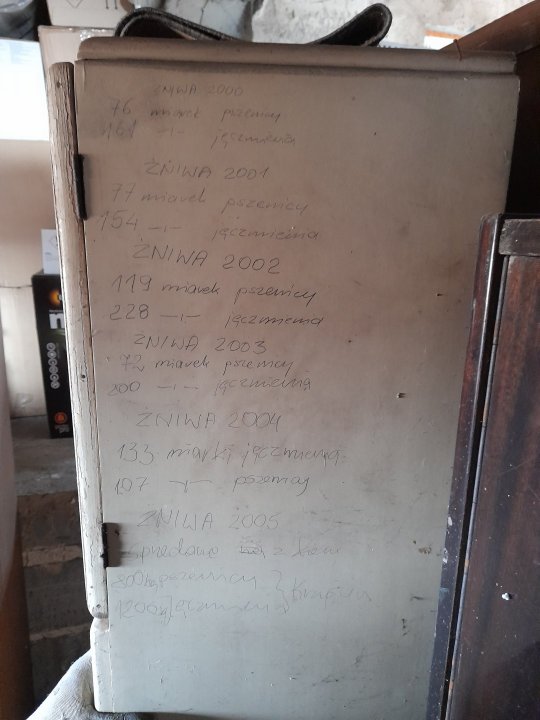 ŻNIWA 2000
76 miarek pszenicy
161 -,,- jęczmienia
ŻNIWA 2001
77 miarek pszenicy
154 -,,- jęczmienia
ŻNIWA 2002
119 miarek pszenicy
228 -,,- jęczmienia
ŻNIWA 2003
72 miarek pszenicy
200 -,,- jęczmienia
ŻNIWA 2004
133 miarki jęczmienia
107 -,,- pszenicy
ŻNIWA 2005
sprzedane z
800kg pszenicy
1200kg jęczmienia